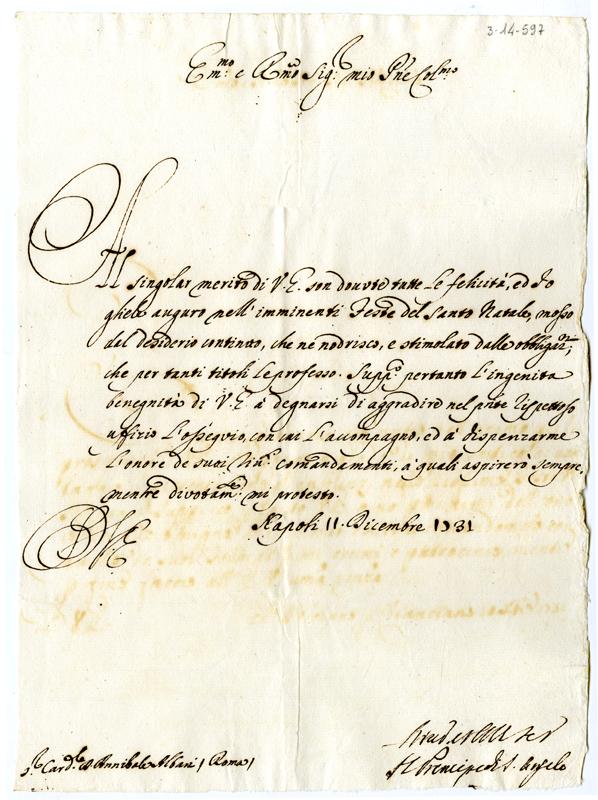 3-14-597
Em.mo e R.mo Sig.r mio P̄ne Col.mo
Al singolar merito di V.E. son dovute tutte le felicità, ed Io
gliele auguro nell'imminenti Feste del Santo Natale, mosso
dal desiderio continuo, che ne nodrisco, e stimolato dalle obbligaz.ni,
che per tanti titoli le professo. Supp.co pertanto l'ingenita
benegnità di V.E. à degnarsi di aggradire nel pñte rispettoso
uffizio l'ossequio, con cui l'accompagno, ed à dispenzarme
l'onore de suoi stim.mi comandamenti, à quali aspirerò sempre,
mentre divotam.te mi protesto.
Napoli 11. Dicembre 1731
D V E
S.r Card.le Annibale Albani / Roma /
Il Prencipe di S. Angelo